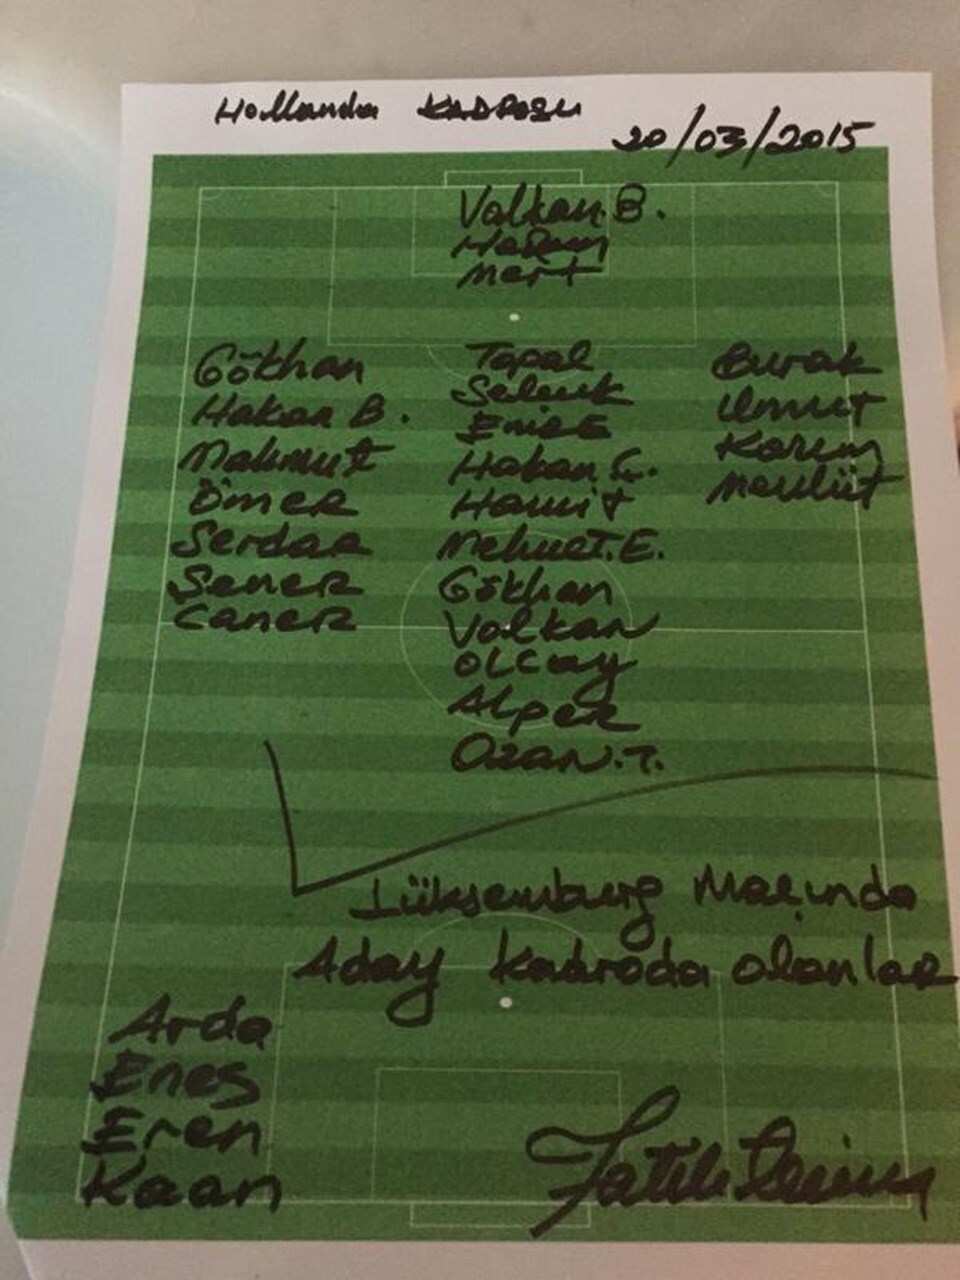 Hollanda KADROSU
20/03/2015
Volkan B.
Harun
Mert
Gökhan
Hakan B.
Mahmut
Ömer
Serdar
Şener
Caner
Topal
Selçuk
Emre
Hakan Ç.
Hamit
Mehmet. E.
Gökhan
Volkan
OLCay
Alper
Ozan. T.
Burak
Umut
Kerim
Mevlüt
Lüksemburg Maçında
Aday Kadroda olanlar
Arda
Enes
Eren
Kaan
Fatih Terim